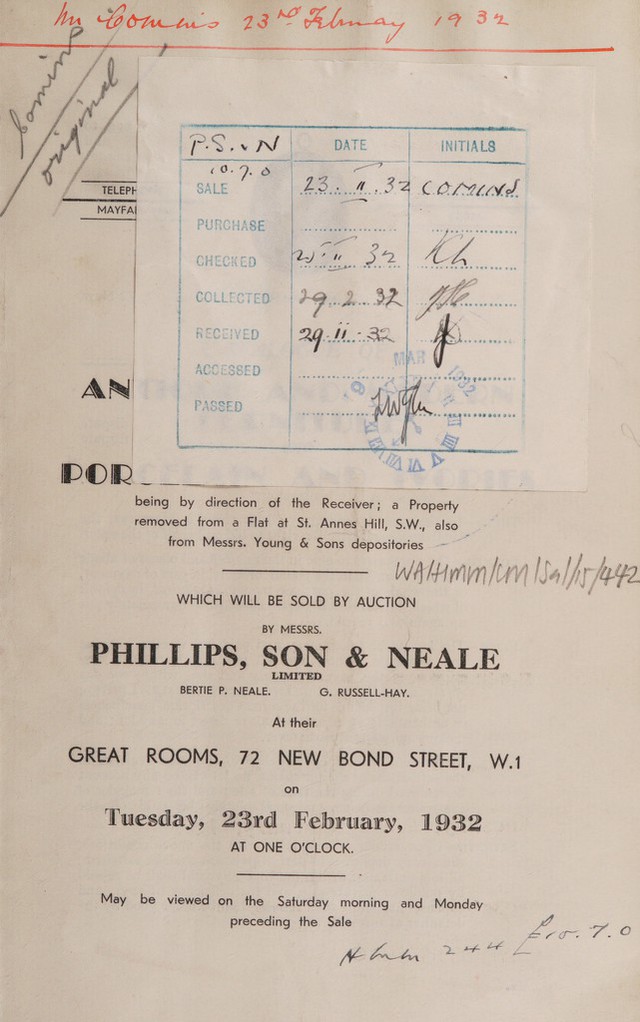 Mr Comins 23rd February 1932
Comins
original
TELEPH
MAYFAI
P.S. & N DATE INITIALS
10.7.0
SALE 23.II.32 COMINS
PURCHASE
CHECKED II 32
COLLECTED 29 2 32
RECEIVED 29.II.32
ACCESSED
PASSED
MAR 1932
AN
POR
being by direction of the Receiver; a Property
removed from a Flat at St. Annes Hill, S.W., also
from Messrs. Young & Sons depositories
WA/HMM/CM/Sal/15/442
WHICH WILL BE SOLD BY AUCTION
BY MESSRS.
PHILLIPS, SON & NEALE
LIMITED
BERTIE P. NEALE. G. RUSSELL-HAY.
At their
GREAT ROOMS, 72 NEW BOND STREET, W.1
on
Tuesday, 23rd February, 1932
AT ONE O'CLOCK.
May be viewed on the Saturday morning and Monday
preceding the Sale
244 £10.7.0